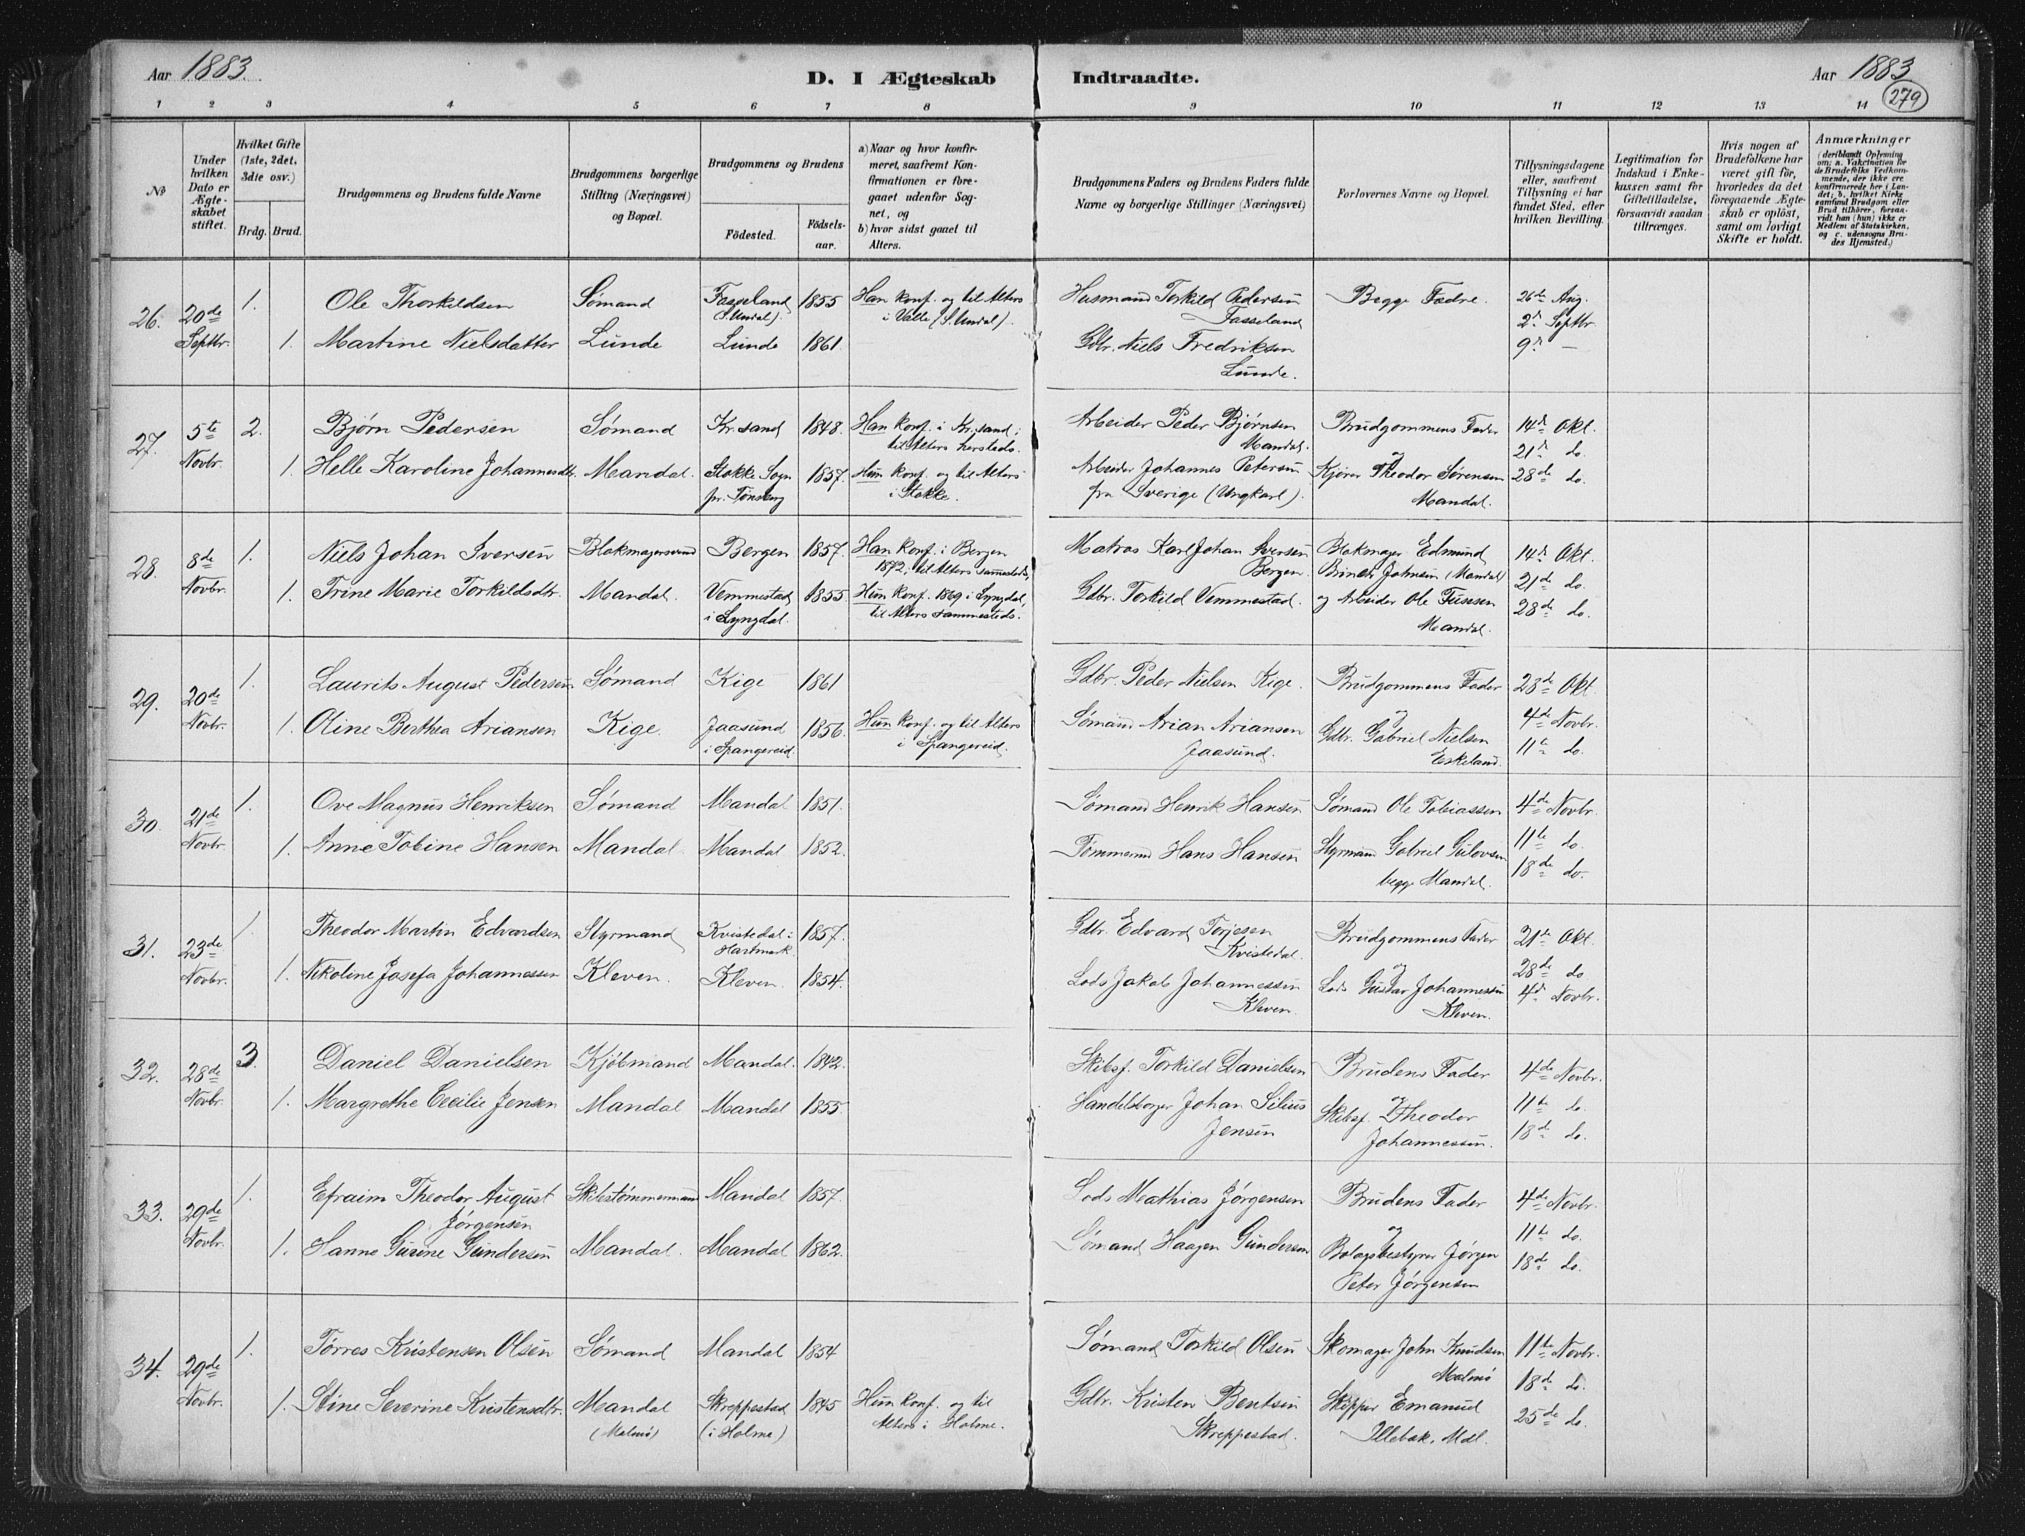 Aar 1883. D. I Ægteskab Indtraadte. Aar 1883
279
1 2 3 4 5 6 7 8 9 10 11 12 13 14
№
Under hvilken Dato er Ægteskabet stiftet.
Hvilket Gifte (1ste, 2det, 3die osv.)
Brdg. Brud.
Brudgommens og Brudens fulde Navne
Brudgommens borgerlige Stilling (Næringsvei) og Bopæl.
Brudgommens og Brudens
Födested. Födselsaar.
a) Naar og hvor konfirmeret, saafremt Konfirmationen er foregaaet udenfor Sognet, og
b) hvor sidst gaaet til Alters.
Brudgommens Faders og Brudens Faders fulde Navne og borgerlige Stillinger (Næringsvei)
Forlovernes Navne og Bopæl.
Tillysningsdagene eller, saafremt Tillysning ei har fundet Sted, efter hvilken Bevilling.
Legitimation for Indskud i Enkekassen samt for Giftetilladelse, forsaavidt saadan tiltrænges.
Hvis nogen af Brudefolkene har været gift för, hvorledes da det foregaaende Ægteskab er oplöst, samt om lovligt Skifte er holdt.
Anmærkninger
(deriblandt Oplysning om: a. Vakcination for de Brudefolks Vedkommende, der ikke ere konfirmerede her i Landet; b. hvilket Kirkesamfund Brudgom eller Brud tilhörer, forsaavidt han (hun) ikke er Medlem af Statskirken, og c. udensogns Brudes Hjemsted.)
26. 20de Septbr. 1. Ole Thorkildsen Sømand Fasseland (S. Undal). 1855 Han konf. og til Alters i Valle (S. Undal). Husmand Torkild Pedersen Fasseland Begge Fædre. 26de Aug.
2d Septbr.
1. Martine Nielsdatter Lunde Lunde 1861. Gdbr. Niels Fredriksen Lunde. 9d —
27. 5te Novbr. 2. Bjørn Pedersen Sømand Kr.sand 1848. Han konf. i Kr.sand; til Alters hersteds. Arbeider Peder Bjørnsen Mandal. Brudgommens Fader og 14d Okt.
21d do.
1. Helle Karoline Johannesdtr. Mandal. Stokke Sogn pr. Tønsberg 1857. Hun konf. og til Alters i Stokke. Arbeider Johannes Petersen fra Sverige (Ungkarl). Kjører Theodor Sørensen Mandal. 28de do.
28. 8de Novbr. 1. Niels Johan Iversen Blokmagersvend Bergen 1857. Han konf. i Bergen 1872; til Alters sammesteds. Matros Karl Johan Iversen Bergen. Blokmager Edmund Johnsen (Mandal) 14d Okt.
21de do.
1. Trine Marie Torkildsdtr. Mandal. Vemmestad i Lyngdal. 1855 Hun konf. 1869 i Lyngdal, til Alters sammesteds. Gdbr. Torkild Vemmestad. og Arbeider Ole Mandal. 28de do.
29. 20de Novbr. 1. Laurits August Pedersen Sømand Kige 1861 Gdbr. Peder Nielsen Kige. Brudgommens Fader og 28de Okt.
4de Novbr.
1. Oline Berthea Ariansen Kige. Jaasund i Spangereid. 1856. Hun konf. og til Alters i Spangereid. Sømand Arian Ariansen Jaasund. Gdbr. Gabriel Nielsen Eskeland. 11te do.
30. 21de Novbr. 1. Ove Magnus Henriksen Sømand Mandal 1851. Sømand Henrik Hansen Sømand Ole Tobiassen 4de Novbr.
11te do.
1. Anne Tobine Hansen Mandal. Mandal 1852. Tømmermd Hans Hansen Styrmand Gabriel begge Mandal. 18de do.
31. 23de Novbr. 1. Theodor Martin Edvardsen Styrmand Kvistedal i Hartmark 1857. Gdbr. Edvard Terjesen Kvistedal. Brudgommens Fader og 21de Okt.
28de do
1. Nikoline Josefa Johannessen Kleven. Kleven. 1854. Lods Jakob Johannessen Kleven. Lods Gustav Johannessen Kleven. 4de Novbr.
32. 28de Novbr. 3. Daniel Danielsen Kjøbmand Mandal. 1842. Skibsf. Torkild Danielsen Brudens Fader og 4de Novbr.
11te do.
1. Margrethe Cecilie Jensen Mandal Mandal 1855. Handelsborger Johan Silius Jensen Skibsf. Theodor Johannessen. 18de do.
33. 29de Novbr. 1. Efraim Theodor August Jørgensen Skibstømmermand Mandal 1857. Lods Mathias Jørgensen Brudens Fader og 4de Novbr.
11te do.
1. Hanne Gurine Gundersen Mandal. Mandal 1862. Sømand Haagen Gundersen Bolagsbestyrer Jørgen Peter Jørgensen 18de do.
34. 29de Novbr. 1. Tørres Kristensen Olsen Sømand Mandal 1854 Sømand Torkild Olsen Skomager John Knudsen Malmø 11te Novbr.
18de do.
1. Stine Severine Kristensdtr. Mandal (Malmø) Skreppestad (i Holme) 1845 Hun konf. og til Alters i Holme. Gdbr. Kristen Bentsen Skreppestad. Skipper Emanuel Illebak, Mdl. 25de do.